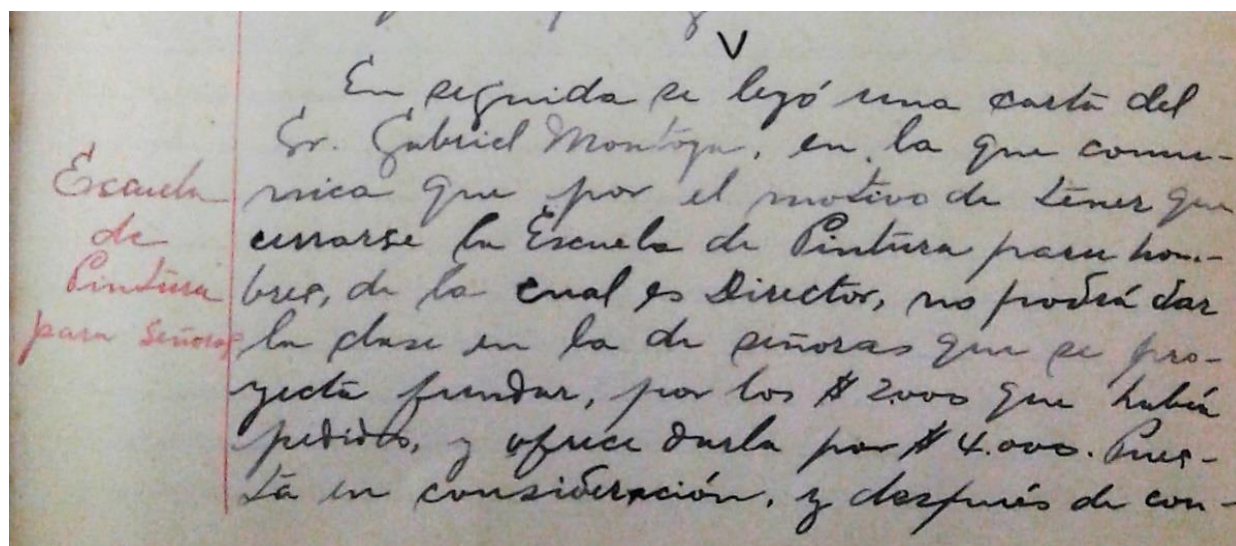 V
En seguida se leyó una carta del
Sr. Gabriel Montoya, en la que comu-
nica que por el motivo de tener que
cerrarse la Escuela de Pintura para hom-
bres, de la cual es Director, no podrá dar
la clase en la de señoras que se pro-
yecta fundar, por los $ 2.000 que había
pedido, y ofrece darla por $ 4.000. Pues-
ta en consideración, y después de con-
Escuela
de
Pintura
para Señoras